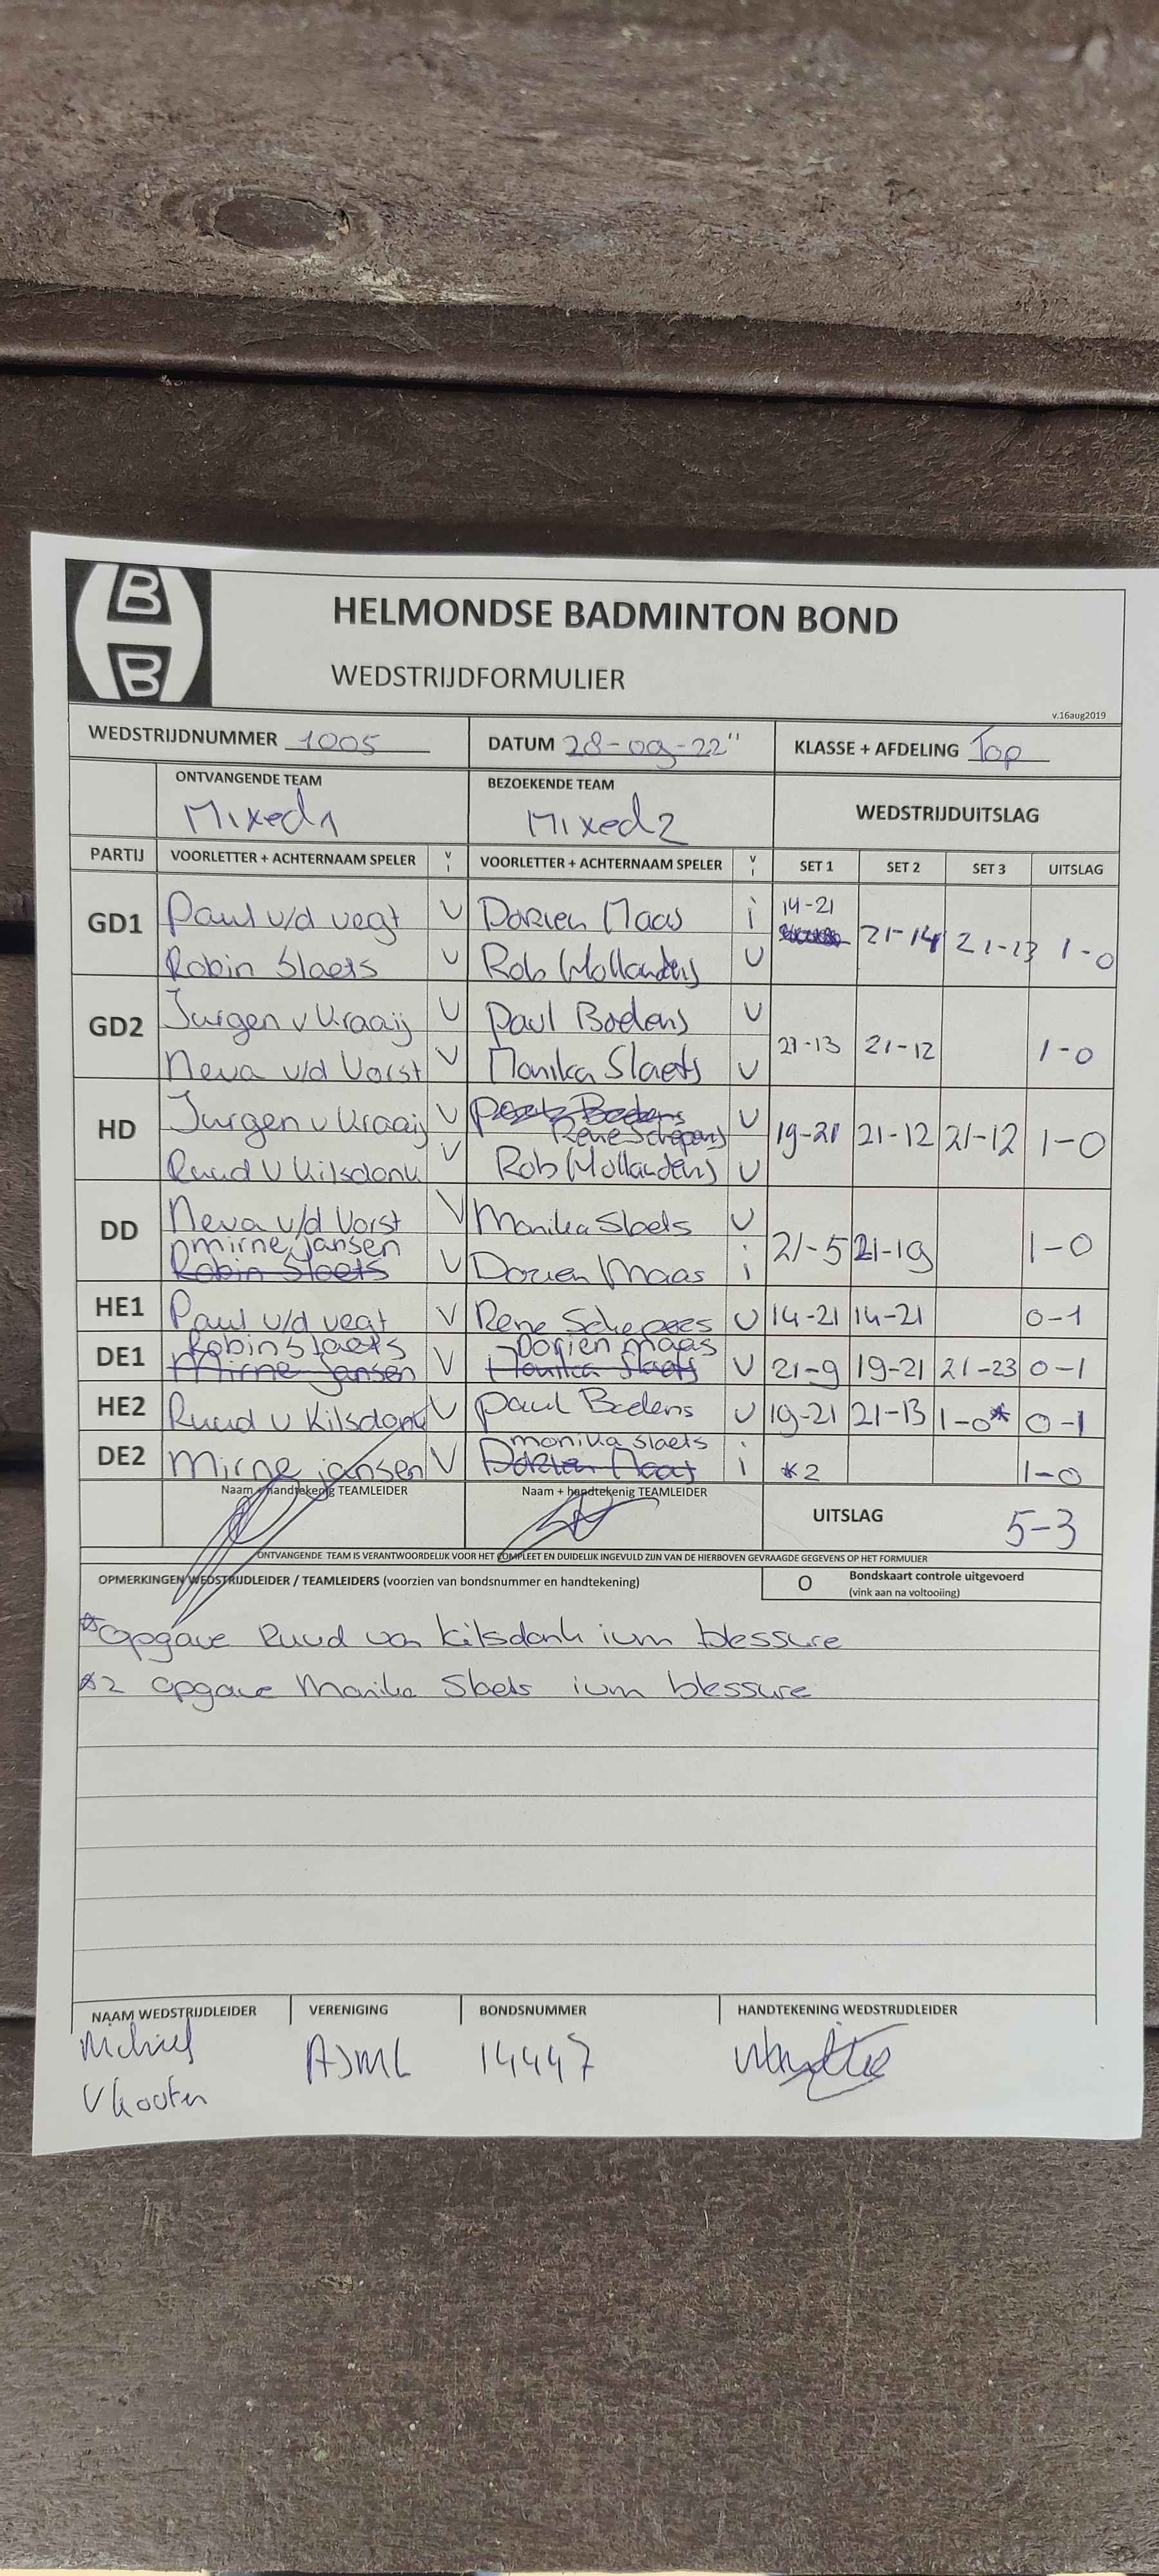 B
B
HELMONDSE BADMINTON BOND
WEDSTRIJDFORMULIER
v.16aug2019
WEDSTRIJDNUMMER 1005 DATUM 28-09-22" KLASSE + AFDELING Top
ONTVANGENDE TEAM BEZOEKENDE TEAM WEDSTRIJDUITSLAG
Mixed1 Mixed2
PARTIJ VOORLETTER + ACHTERNAAM SPELER V I VOORLETTER + ACHTERNAAM SPELER V I SET 1 SET 2 SET 3 UITSLAG
GD1 Paul v/d vegt V Dorien Maas i 14-21 21-14 21-13 1-0
Robin Slaets V Rob Wollanders V
GD2 Jurgen v Kraaij V Paul Bodens V 21-13 21-12 1-0
Neva v/d Vorst V Monika Slaets V
HD Jurgen v Kraaij V Bodens V 19-21 21-12 21-12 1-0
Rene Schepers
Ruud v Kilsdonk V Rob Wollanders V
DD Neva v/d Vorst V Monika Slaets V 21-5 21-19 1-0
mirne jansen
Robin Slaets V Dorien Maas i
HE1 Paul v/d vegt V Rene Schepers V 14-21 14-21 0-1
Robin Slaets Dorien maas
DE1 Mirne jansen V Monika Slaets V 21-9 19-21 21-23 0-1
HE2 Ruud v Kilsdonk V Paul Bodens V 19-21 21-13 1-0* 0-1
monika slaets
DE2 Mirne jansen V Dorien Maas i *2 1-0
Naam + handtekenig TEAMLEIDER Naam + handtekenig TEAMLEIDER UITSLAG 5-3
ONTVANGENDE TEAM IS VERANTWOORDELIJK VOOR HET COMPLEET EN DUIDELIJK INGEVULD ZIJN VAN DE HIERBOVEN GEVRAAGDE GEGEVENS OP HET FORMULIER
OPMERKINGEN WEDSTRIJDLEIDER / TEAMLEIDERS (voorzien van bondsnummer en handtekening) O Bondskaart controle uitgevoerd
(vink aan na voltooiing)
*opgave Ruud van kilsdonk ivm blessure
*2 opgave Monika Slaets ivm blessure
NAAM WEDSTRIJDLEIDER VERENIGING BONDSNUMMER HANDTEKENING WEDSTRIJDLEIDER
Michiel AJML 14447
v kooten